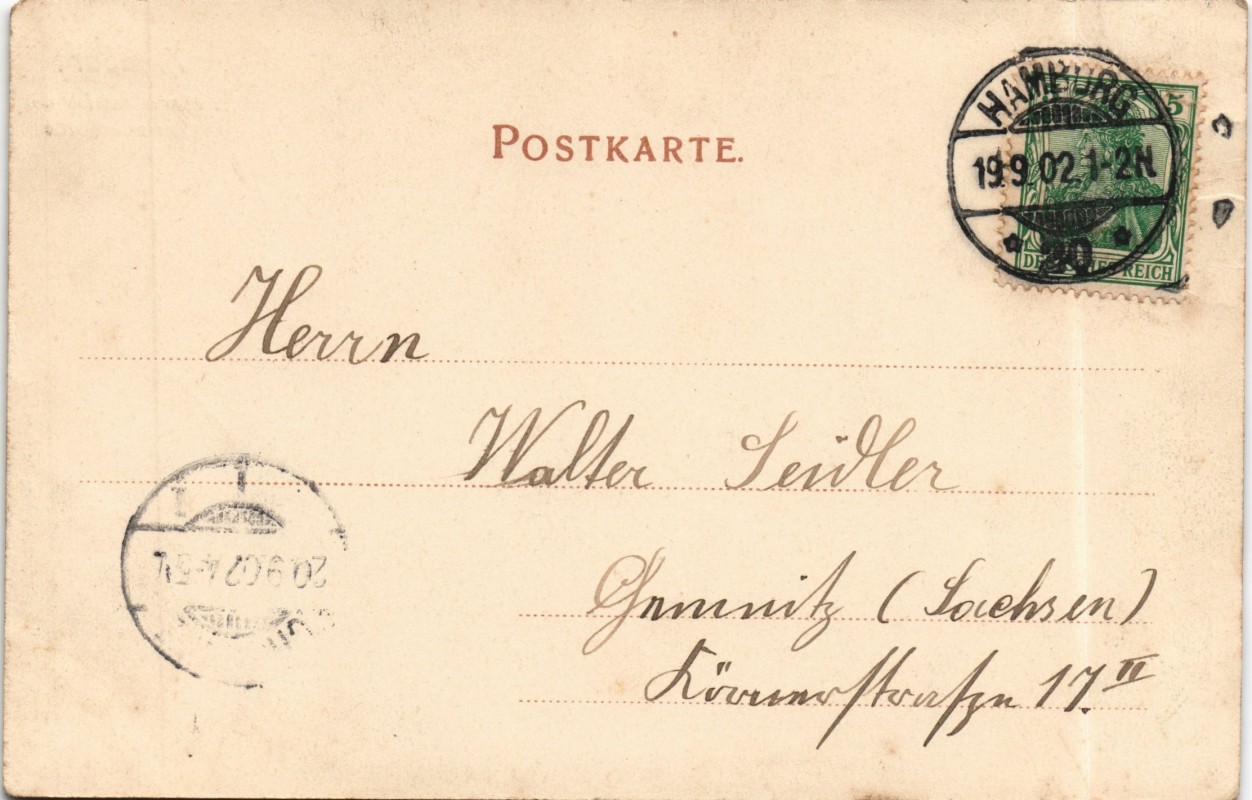 POSTKARTE.
HAMBURG
19.9.02.1-2N
* *
5
REICH
Herrn
Walter Seidler
Chemnitz (Sachsen)
Körnerstrasze 17. II
20.9.02.4-5